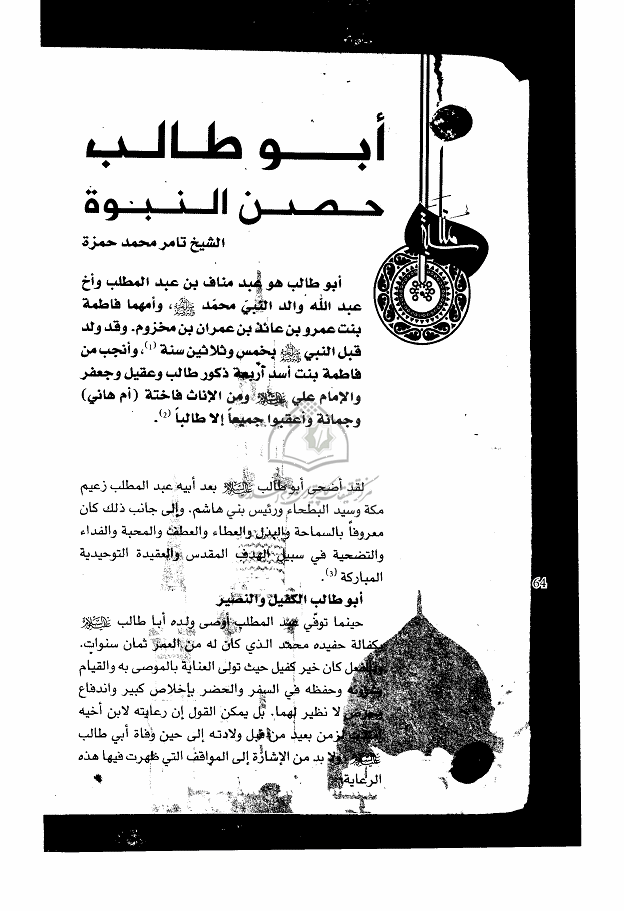 أبو طالب
حصن النبوة
الشيخ تامر محمد حمزة
أبو طالب هو عبد مناف بن عبد المطلب وأخ
عبد الله والد النبيّ محمّد ﷺ، وأمهما فاطمة
بنت عمرو بن عائذ بن عمران بن مخزوم. وقد ولد
قبل النبي ﷺ بخمس وثلاثين سنة (1)، وأنجب من
فاطمة بنت أسد أربعة ذكور طالب وعقيل وجعفر
والإمام علي عليه السلام ومن الإناث فاختة (أم هاني)
وجمانة وأعقبوا جميعاً إلا طالباً (2).
لقد أضحى أبو طالب عليه السلام بعد أبيه عبد المطلب زعيم
مكة وسيد البطحاء ورئيس بني هاشم. وإلى جانب ذلك كان
معروفاً بالسماحة والبذل والعطاء والعطف والمحبة والفداء
والتضحية في سبيل الهدف المقدس والعقيدة التوحيدية
المباركة (3).
أبو طالب الكفيل والنصير
حينما توفّي عبد المطلب أوصى ولده أبا طالب عليه السلام
بكفالة حفيده محمد الذي كان له من العمر ثمان سنوات.
وبالفعل كان خير كفيل حيث تولى العناية بالموصى به والقيام
وحفظه في السفر والحضر بإخلاص كبير واندفاع
لا نظير لهما. بل يمكن القول إن رعايته لابن أخيه
لزمن بعيد من قبل ولادته إلى حين وفاة أبي طالب
عليه السلام ولا بد من الإشارة إلى المواقف التي ظهرت فيها هذه
الرعاية:
64